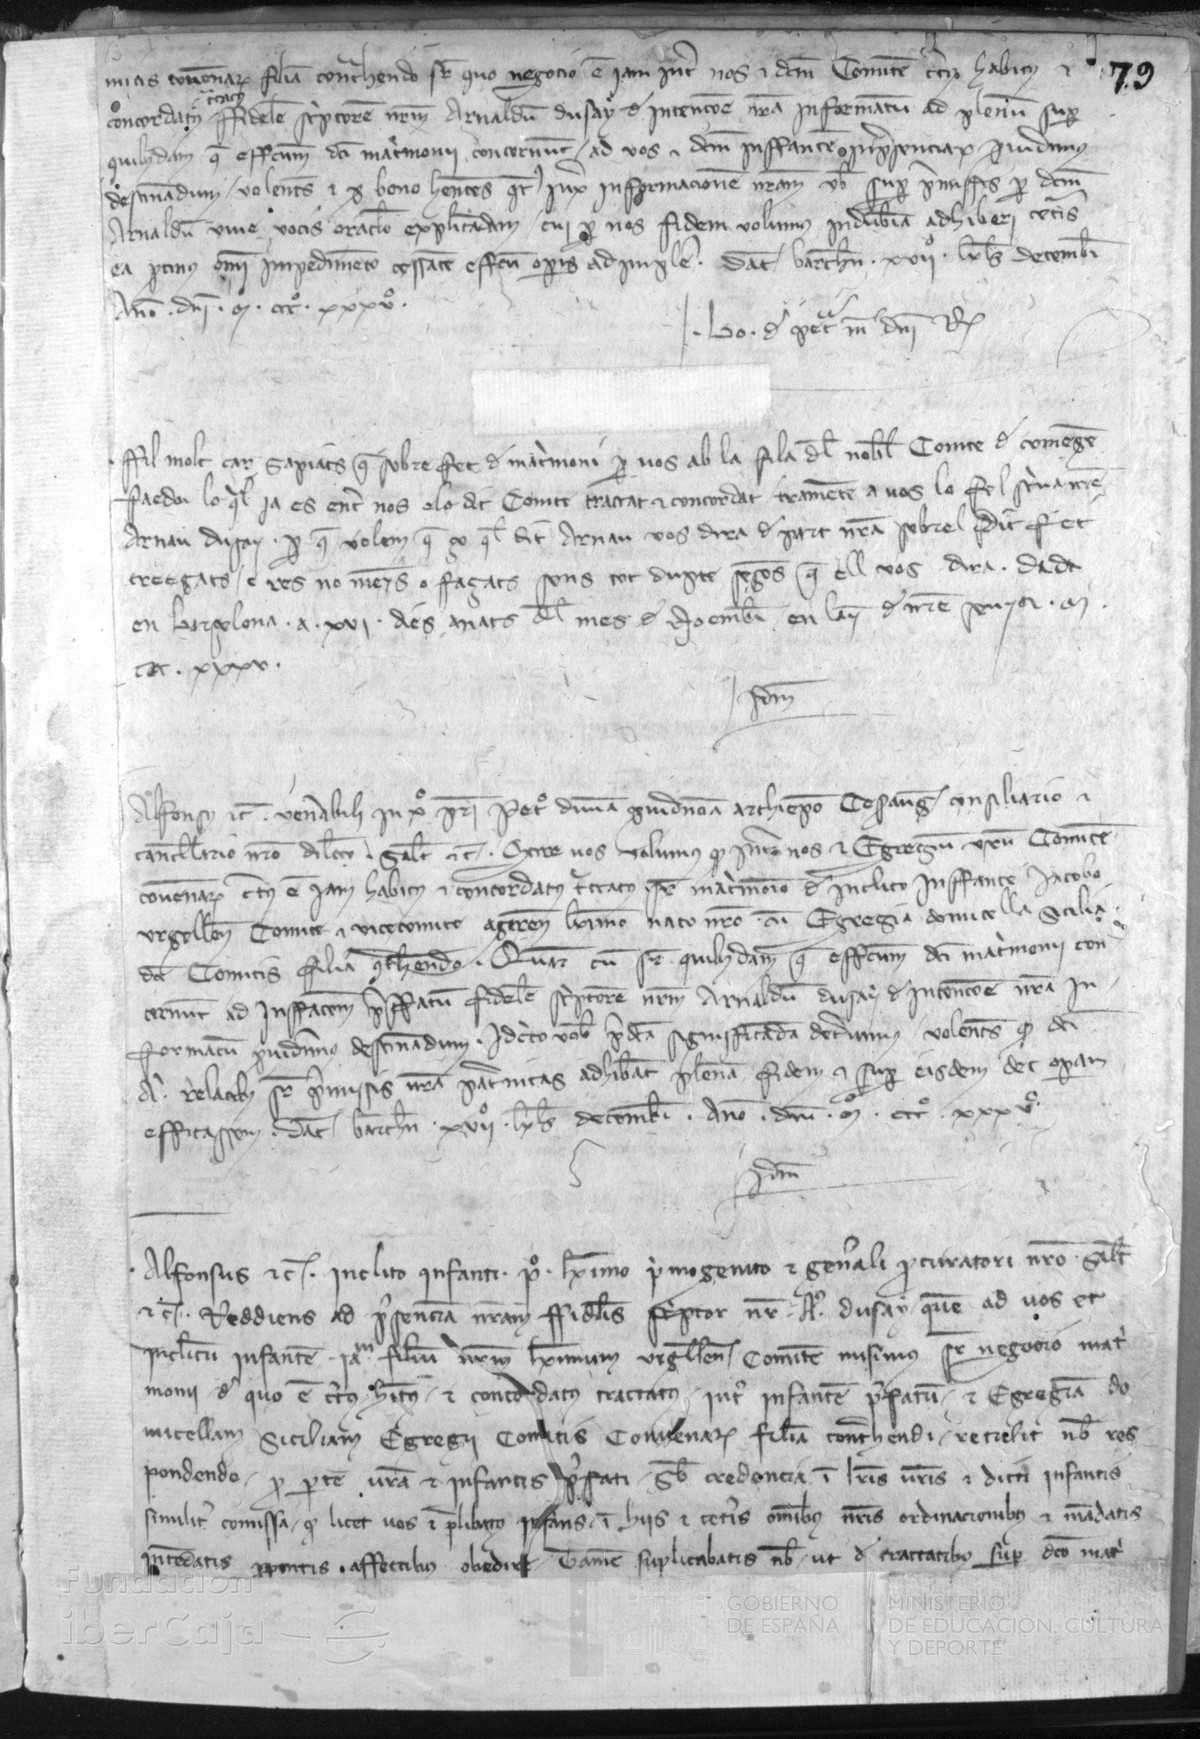 79
mitis convenarum filia contrahendo super quo negocio est iam inter nos et dictum Comitem certus habitus et
tractatus
concordatus ffidelem scriptorem nostrum Arnaldum dusay de intencione nostra informatum ad plenum super
quibusdam que effectum dicti matrimonii concernunt ad vos et dictum inffantem in presenciarum providimus
destinandum volentes et pro bono habentes quod iuxta informacionem nostram vobis super premissis per dictum
Arnaldum vive vocis oraculo explicandam cui per nos fidem volumus indubiam adhiberi certis
ea protinus omni impedimento cessante effectum operis adimplere. Dat barchn. xvii. kls decembr
Anno. dni. M. ccc. xxxv.
Bo. de petra mandato dni R
ffil molt car sapiats que sobre fet de matrimoni per vos ab la fila del nobl Comte de comenge
faedor lo qual ja es entre nos e lo dit Comte tractat et concordat trametem a vos lo feel scriva nostre
Arnau dusay. per que volem que ço quel dit Arnau vos dira de part nostra sobrel dit fet
creegats e res no menys o façats sens tot dupte segons que ell vos dira. Dada
en barçelona. a. xvi. dies anats del mes de Noembr en lany de nostre senyor. M.
ccc. xxxv.
Idm
Alfonsus etc. venerabili in xpo patri Petro divina providencia archiepo Cesaraug consiliario et
cancellario nostro dilecto. Salt etc. Scire vos volumus quod inter nos et Egregium virum Comitem
convenarum certus est iam habitus et concordatus tractatus super matrimonio de inclito Inffante Jacobo
urgellen Comite et vicecomite ageren karissimo nato nostro cum Egregia domicella Sicilia
dicti Comitis filia contrahendo. Quare cum super quibusdam que effectum dicti matrimonii con
cernunt ad Inffantem preffatum fidelem scriptorem nostrum Arnaldum dusay de intencione nostra in
formatum providimus destinandum. Idcirco vobis predicta significanda decrevimus volentes quod dicti
A. relatibus super premissis vestra paternitas adhibeat plenam fidem et super eisdem det operam
efficacem. Dat barchn. xvii. kls decembr. Anno. dni. M. ccc. xxxv.
Idm
Alfonsus etc. Inclito infanti. P. karissimo primogenito et generali procuratori nostro. Salt
etc. Reddiens ad presenciam nostram ffidelis scriptor noster. A. dusay quem ad vos et
inclitum infantem. Iam. filium nostrum karissimum urgellen Comitem misimus super negocio matri
monii de quo est certus habitus et concordatus tractatus inter infantem prefatum et Egregiam do
micellam Siciliam Egregii Comitis Convenarum filiam contrahendi retulit nobis res
pondendo pro parte vestra et infantis prefati sub credencia in litteris vestris et dicti infantis
similiter comissa quod licet vos et prelibatus infans in hiis et ceteris omnibus nostris ordinacionibus et mandatis
intendatis promptis affectibus obedire tamen suplicabatis nobis ut de tractatibus super dicto matri
Fundación
iberCaja
GOBIERNO
DE ESPAÑA
MINISTERIO
DE EDUCACIÓN, CULTURA
Y DEPORTE